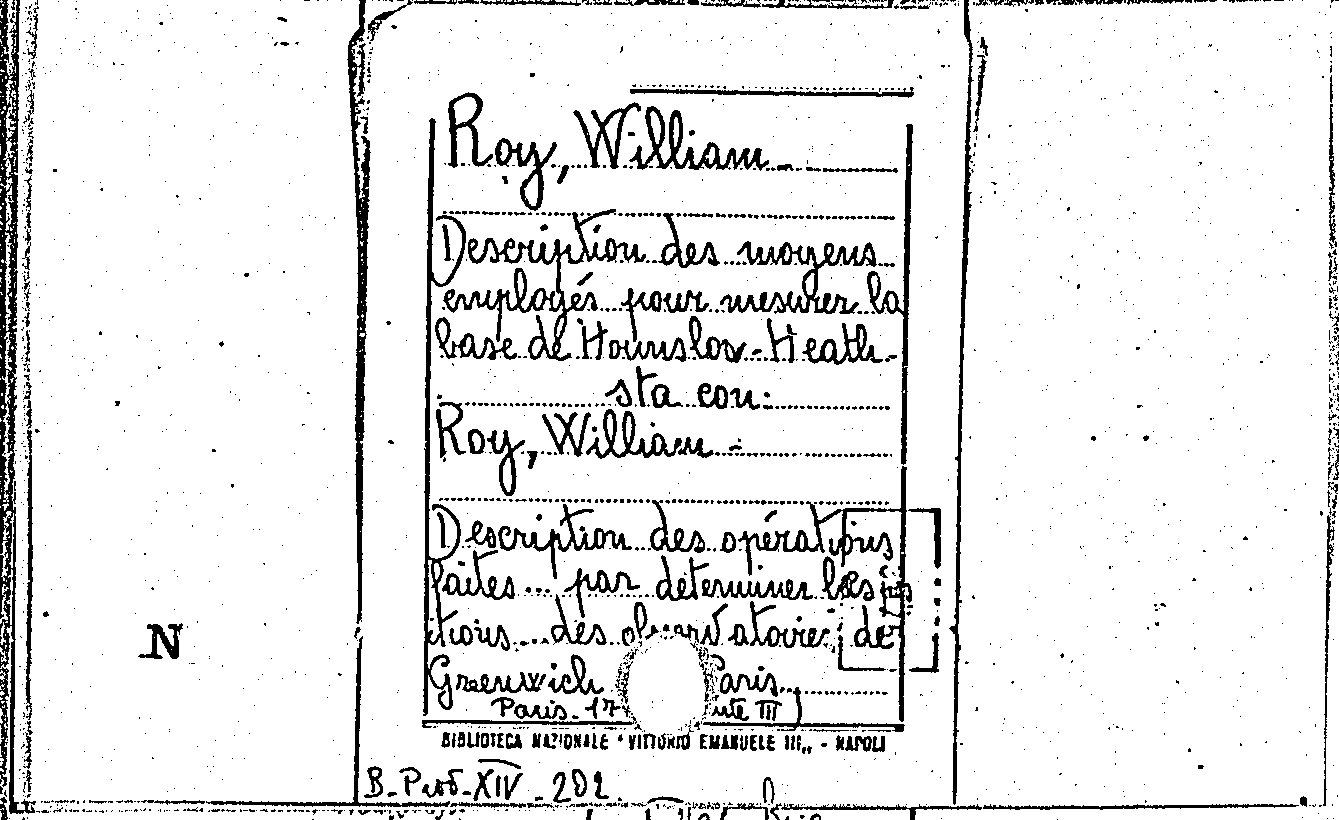 Roy, William -
Description des moyens
employés pour mesurer la
base de Hounslow-Heath -
sta con:
Roy, William -
Description des opérations
faites... par determiner les pos
itions... des observatoires de
Greenwich Paris
Paris - 17 III)
BIBLIOTECA NAZIONALE "VITTORIO EMANUELE III,, - NAPOLI
N
B. Prov. XIV - 202